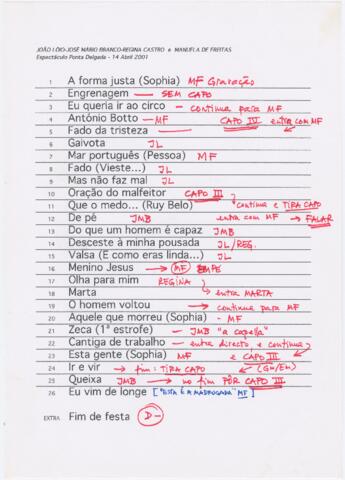 JOÃO LÓIO-JOSÉ MÁRIO BRANCO-REGINA CASTRO e MANUELA DE FREITAS
Espectáculo Ponta Delgada - 14 Abril 2001
1 A forma justa (Sophia) MF Gravação
2 Engrenagem — SEM CAPO
3 Eu queria ir ao circo - continua para MF
4 António Botto — MF CAPO III entra com MF
5 Fado da tristeza
6 Gaivota JL
7 Mar português (Pessoa) MF
8 Fado (Vieste...) JL
9 Mas não faz mal JL
10 Oração do malfeitor CAPO III
11 Que o medo... (Ruy Belo) continua e TIRA CAPO
12 De pé JMB entra com MF → FALAR
13 Do que um homem é capaz JMB
14 Desceste à minha pousada JL/REG.
15 Valsa (E como eras linda...) JL
16 Menino Jesus → MF EM PÉ
17 Olha para mim REGINA
18 Marta entra MARTA
19 O homem voltou → continua para MF
20 Aquele que morreu (Sophia) - MF
21 Zeca (1ª estrofe) JMB "a capella"
22 Cantiga de trabalho — entra directo e continua
23 Esta gente (Sophia) MF e CAPO III
24 Ir e vir → fim: TIRA CAPO (Gm/Em)
25 Queixa JMB → no fim PÔR CAPO III
26 Eu vim de longe ["ESTA É A MADRUGADA" MF]
EXTRA Fim de festa D-